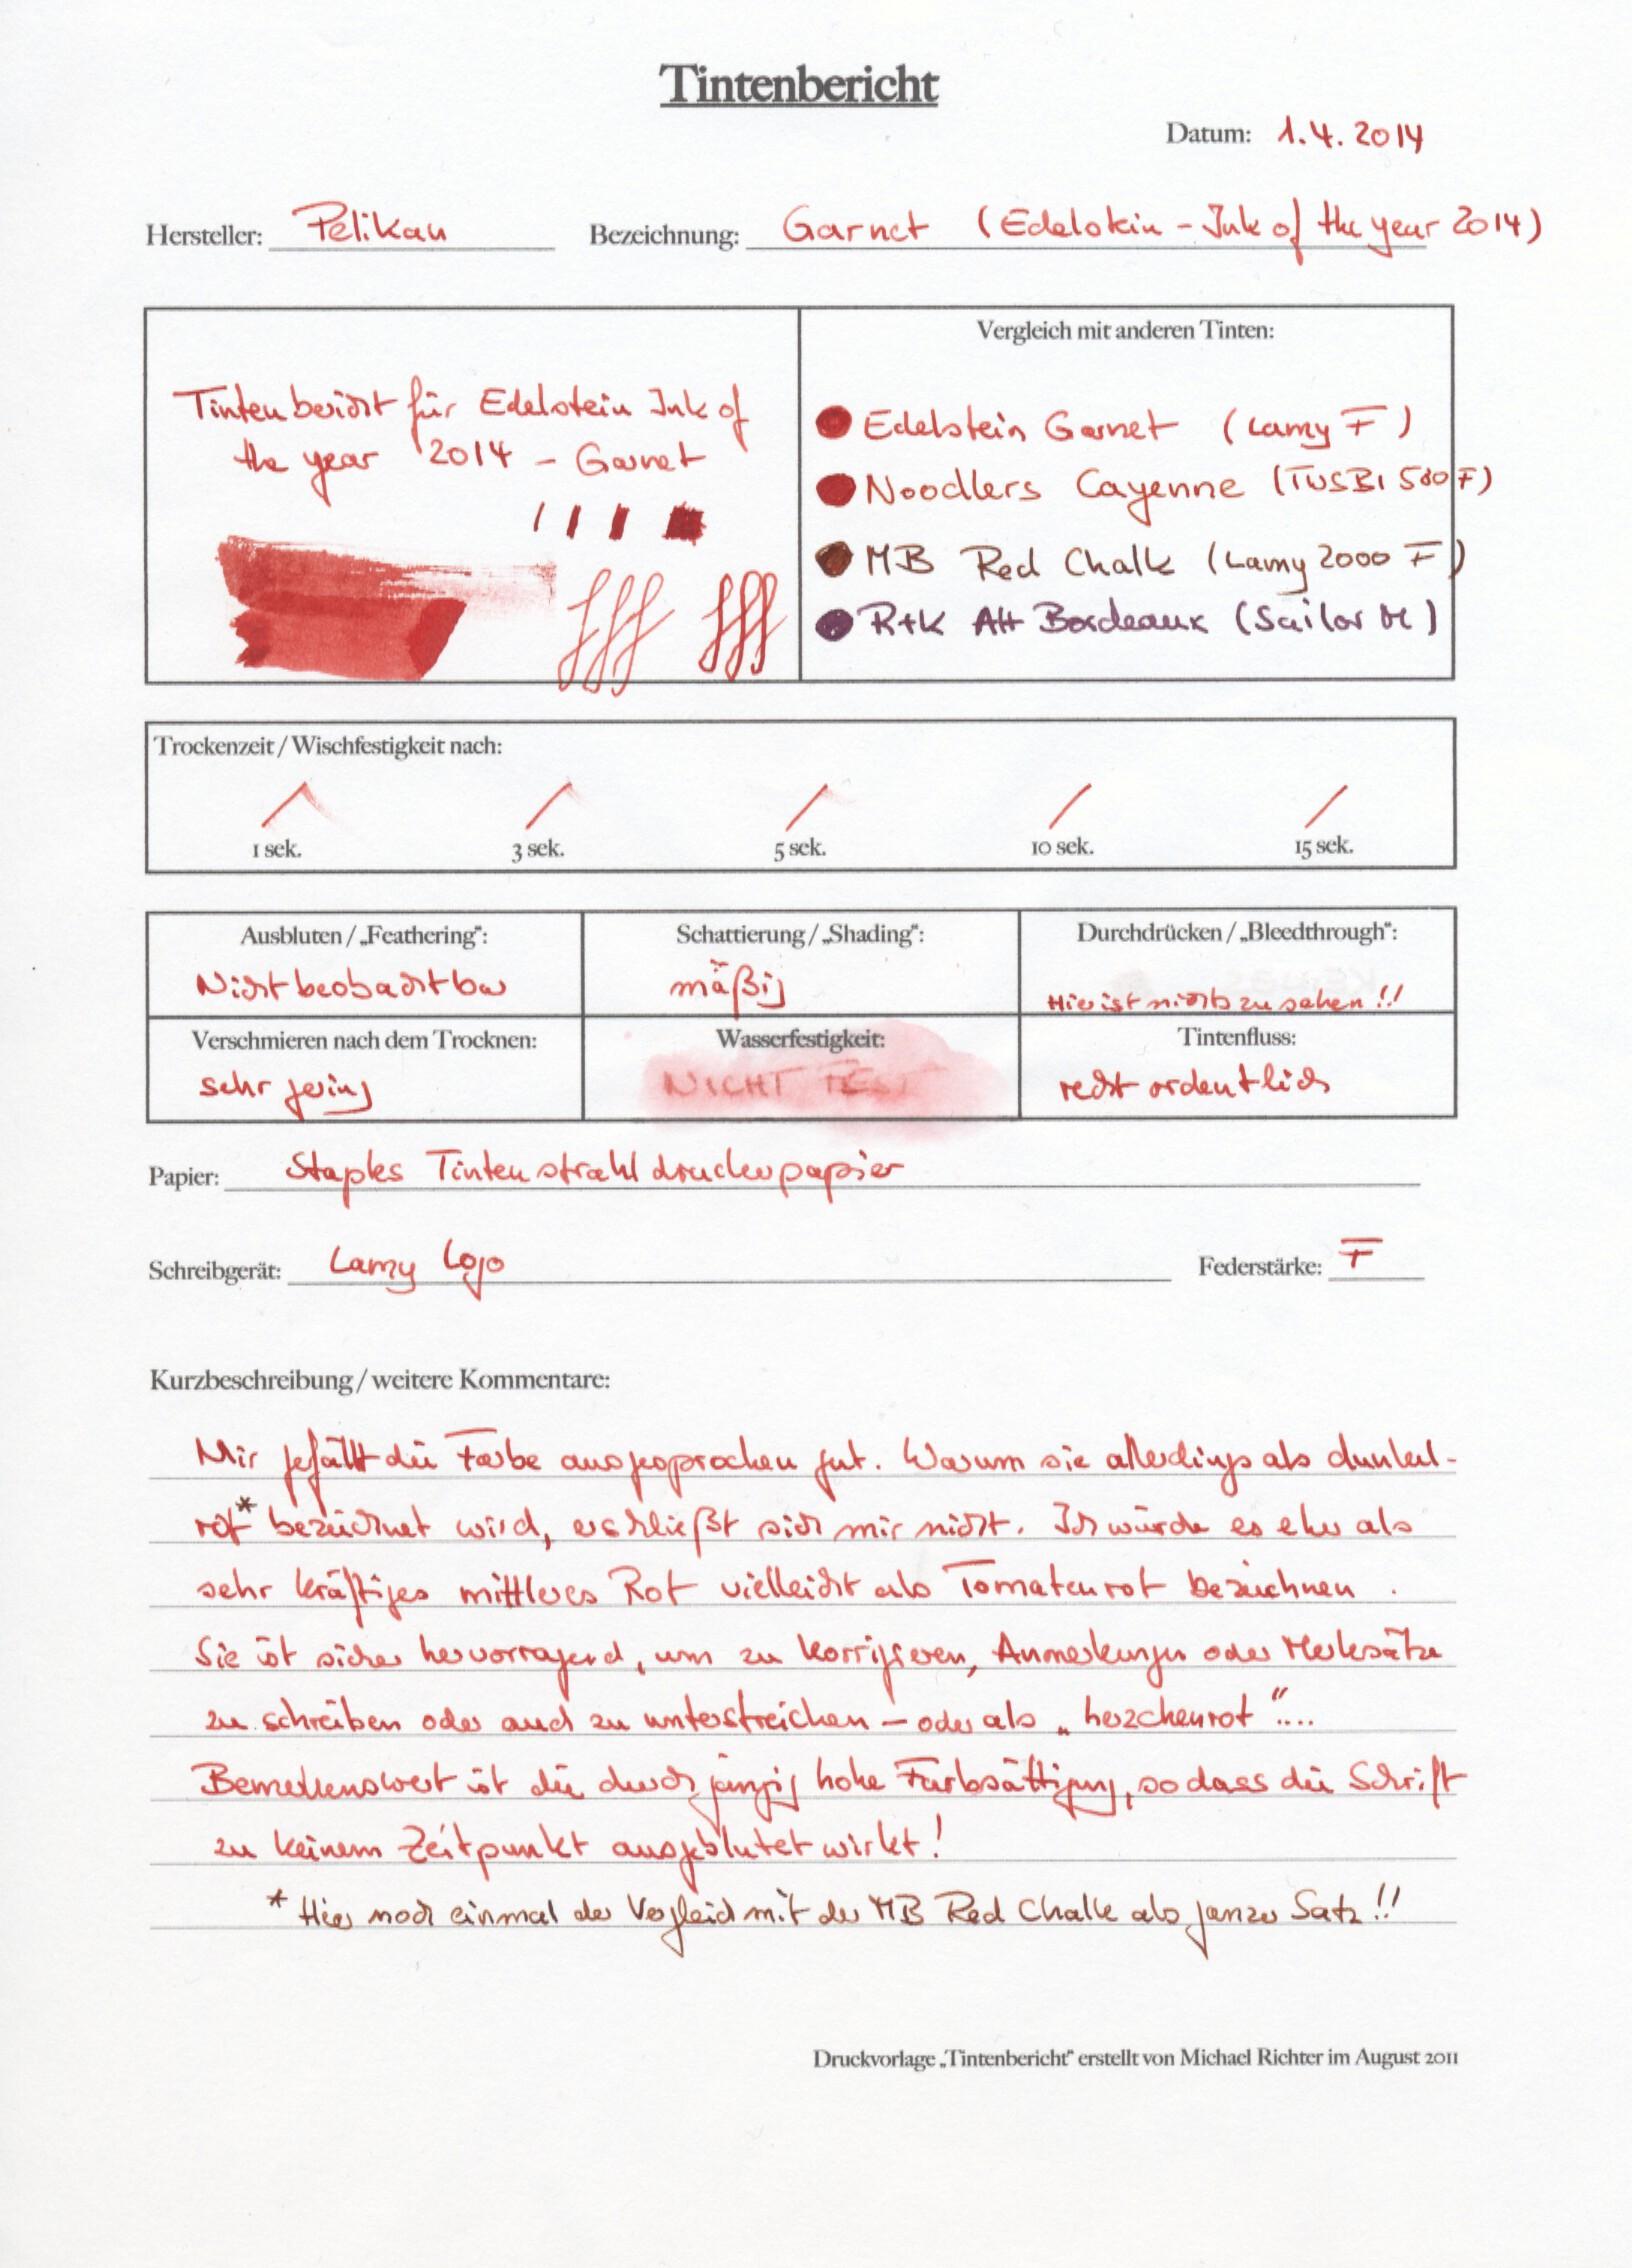 Tintenbericht
Datum: 1.4.2014
Hersteller: Pelikan Bezeichnung: Garnet (Edelstein - Ink of the year 2014)
Tintenbericht für Edelstein Ink of
the year 2014 - Garnet
Vergleich mit anderen Tinten:
Edelstein Garnet (Lamy F)
Noodlers Cayenne (TWSBI 580 F)
MB Red Chalk (Lamy 2000 F)
R+K Alt Bordeaux (Sailor M)
Trockenzeit / Wischfestigkeit nach:
1 sek. 3 sek. 5 sek. 10 sek. 15 sek.
Ausbluten / „Feathering“: Schattierung / „Shading“: Durchdrücken / „Bleedthrough“:
Nicht beobachtbar mäßig Hier ist nichts zu sehen!!
Verschmieren nach dem Trocknen: Wasserfestigkeit: Tintenfluss:
sehr gering NICHT FEST recht ordentlich
Papier: Staples Tintenstrahldruckerpapier
Schreibgerät: Lamy Logo Federstärke: F
Kurzbeschreibung / weitere Kommentare:
Mir gefällt die Farbe ausgesprochen gut. Warum sie allerdings als dunkel-
rot* bezeichnet wird, erschließt sich mir nicht. Ich würde es eher als
sehr kräftiges mittleres Rot vielleicht als Tomatenrot bezeichnen.
Sie ist sicher hervorragend, um zu korrigieren, Anmerkungen oder Merksätze
zu schreiben oder auch zu unterstreichen - oder als „herzchenrot“....
Bemerkenswert ist die durchgängig hohe Farbsättigung, so dass die Schrift
zu keinem Zeitpunkt ausgeblutet wirkt!
* Hier noch einmal der Vergleich mit der MB Red Chalk als ganzer Satz!!
Druckvorlage „Tintenbericht“ erstellt von Michael Richter im August 2011